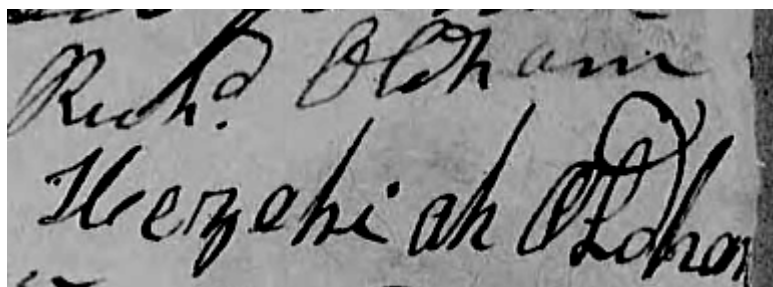 Richd. Oldham
Hezekiah Oldham